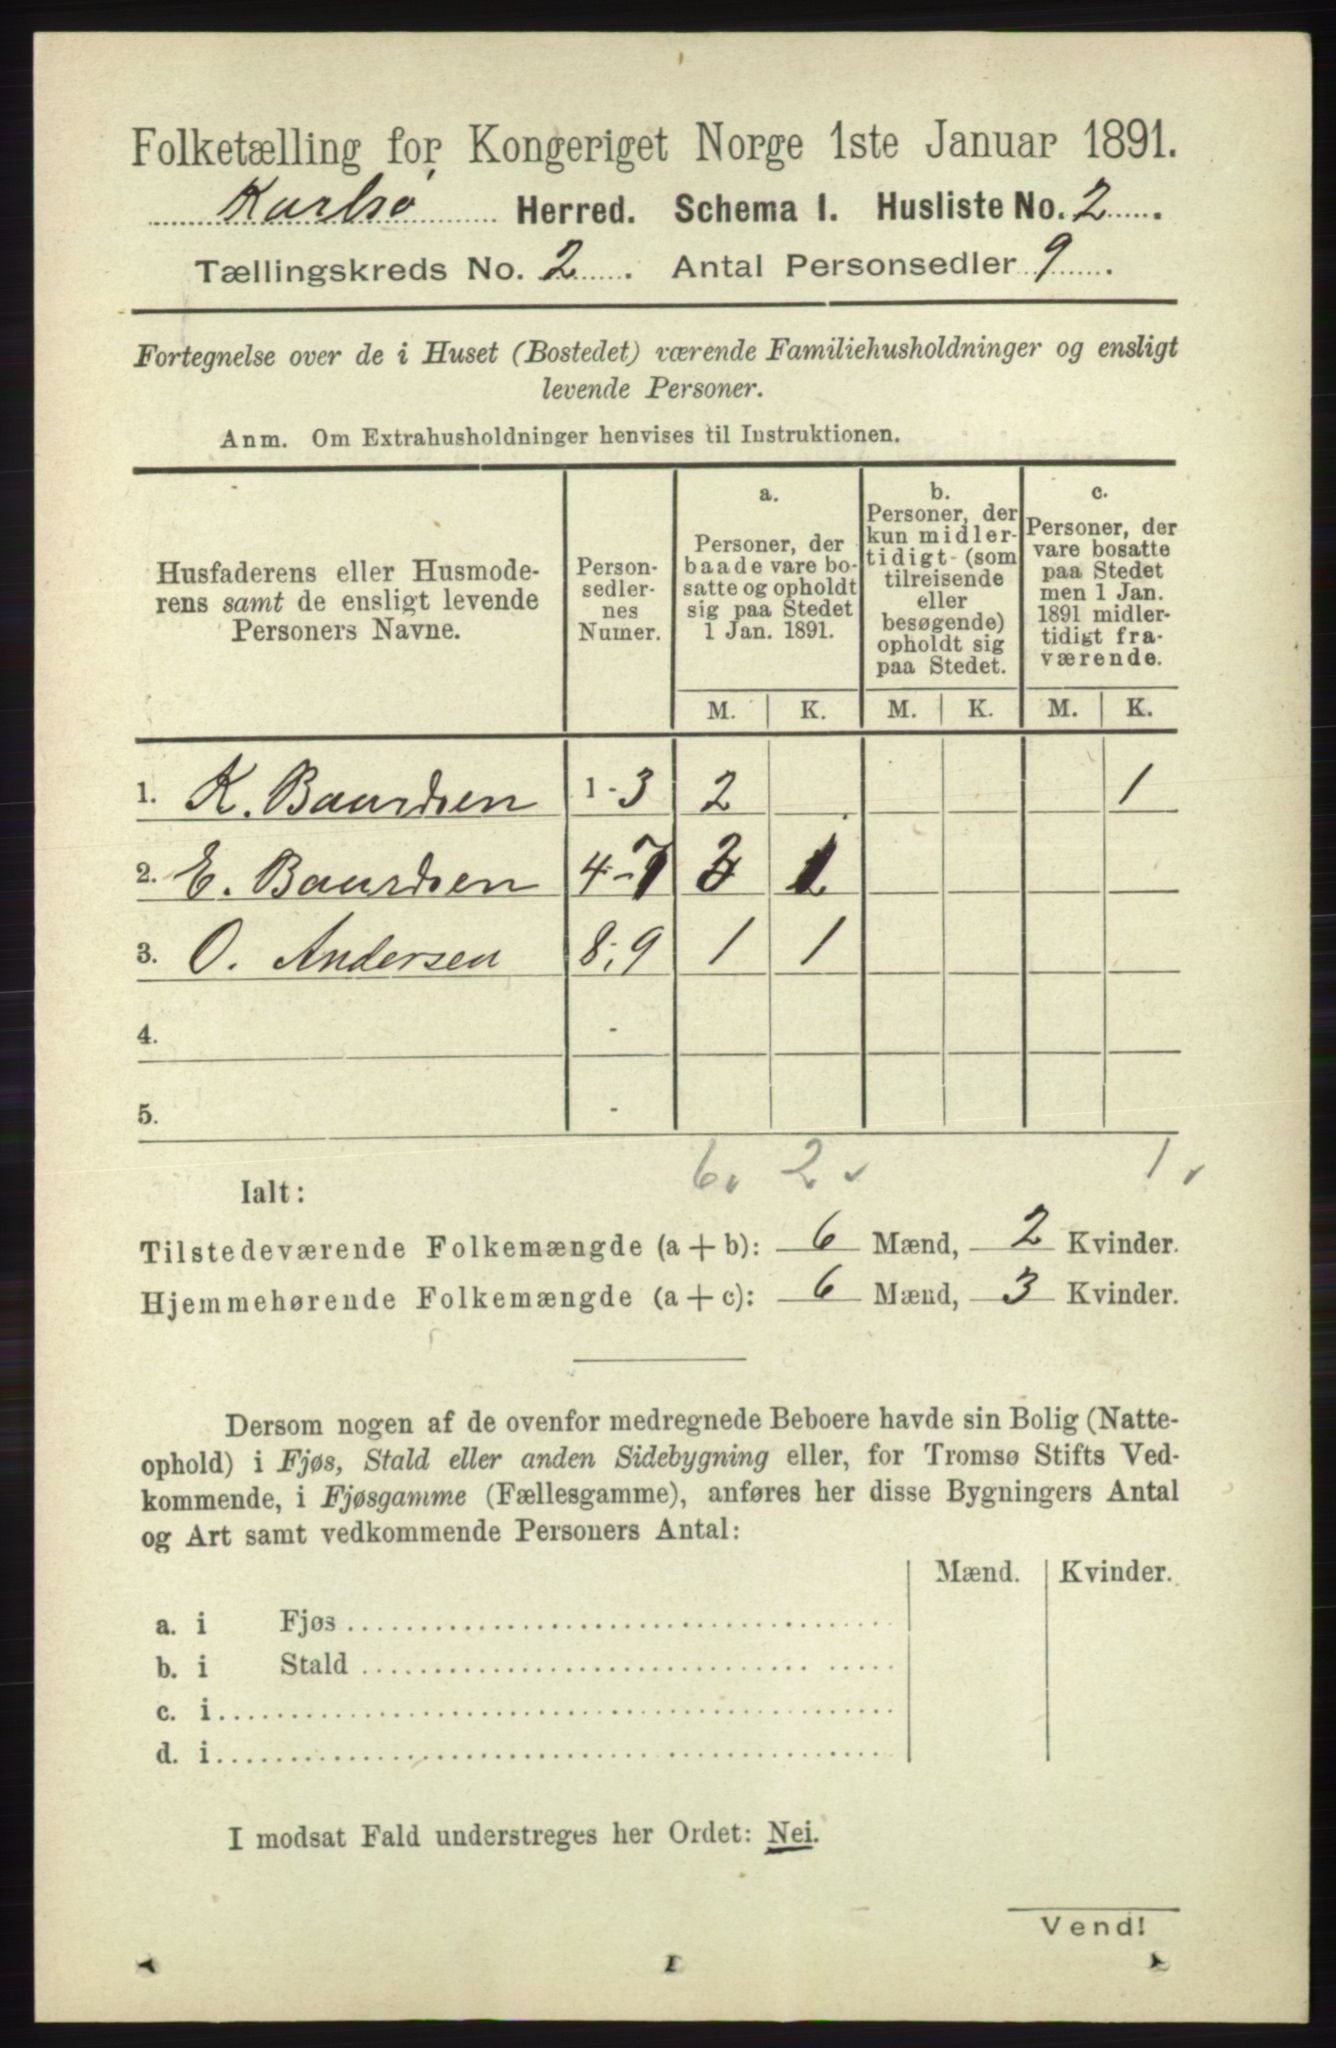 Folketælling for Kongeriget Norge 1ste Januar 1891.
Karlsø Herred. Schema 1. Husliste No. 2.
Tællingskreds No. 2. Antal Personsedler 9.
Fortegnelse over de i Huset (Bostedet) værende Familiehusholdninger og ensligt
levende Personer.
Anm. Om Extrahusholdninger henvises til Instruktionen.
Husfaderens eller Husmode-
rens samt de ensligt levende
Personers Navne.
Person-
sedler-
nes
Numer.
a.
Personer, der
baade vare bo-
satte og opholdt
sig paa Stedet
1 Jan. 1891.
b.
Personer, der
kun midler-
tidigt (som
tilreisende
eller
besøgende)
opholdt sig
paa Stedet.
c.
Personer, der
vare bosatte
paa Stedet
men 1 Jan.
1891 midler-
tidigt fra-
værende.
M. K. M. K. M. K.
1. K. Baardsen 1-3 2 1
2. E. Baardsen 4-7 3 1
3. O. Andersen 8,9 1 1
4. -
5. -
6 2 1
Ialt:
Tilstedeværende Folkemængde (a+b): 6 Mænd, 2 Kvinder.
Hjemmehørende Folkemængde (a+c): 6 Mænd, 3 Kvinder.
Dersom nogen af de ovenfor medregnede Beboere havde sin Bolig (Natte-
ophold) i Fjøs, Stald eller anden Sidebygning eller, for Tromsø Stifts Ved-
kommende, i Fjøsgamme (Fællesgamme), anføres her disse Bygningers Antal
og Art samt vedkommende Personers Antal:
Mænd. Kvinder.
a. i Fjøs
b. i Stald
c. i
d. i
I modsat Fald understreges her Ordet: Nei.
Vend!